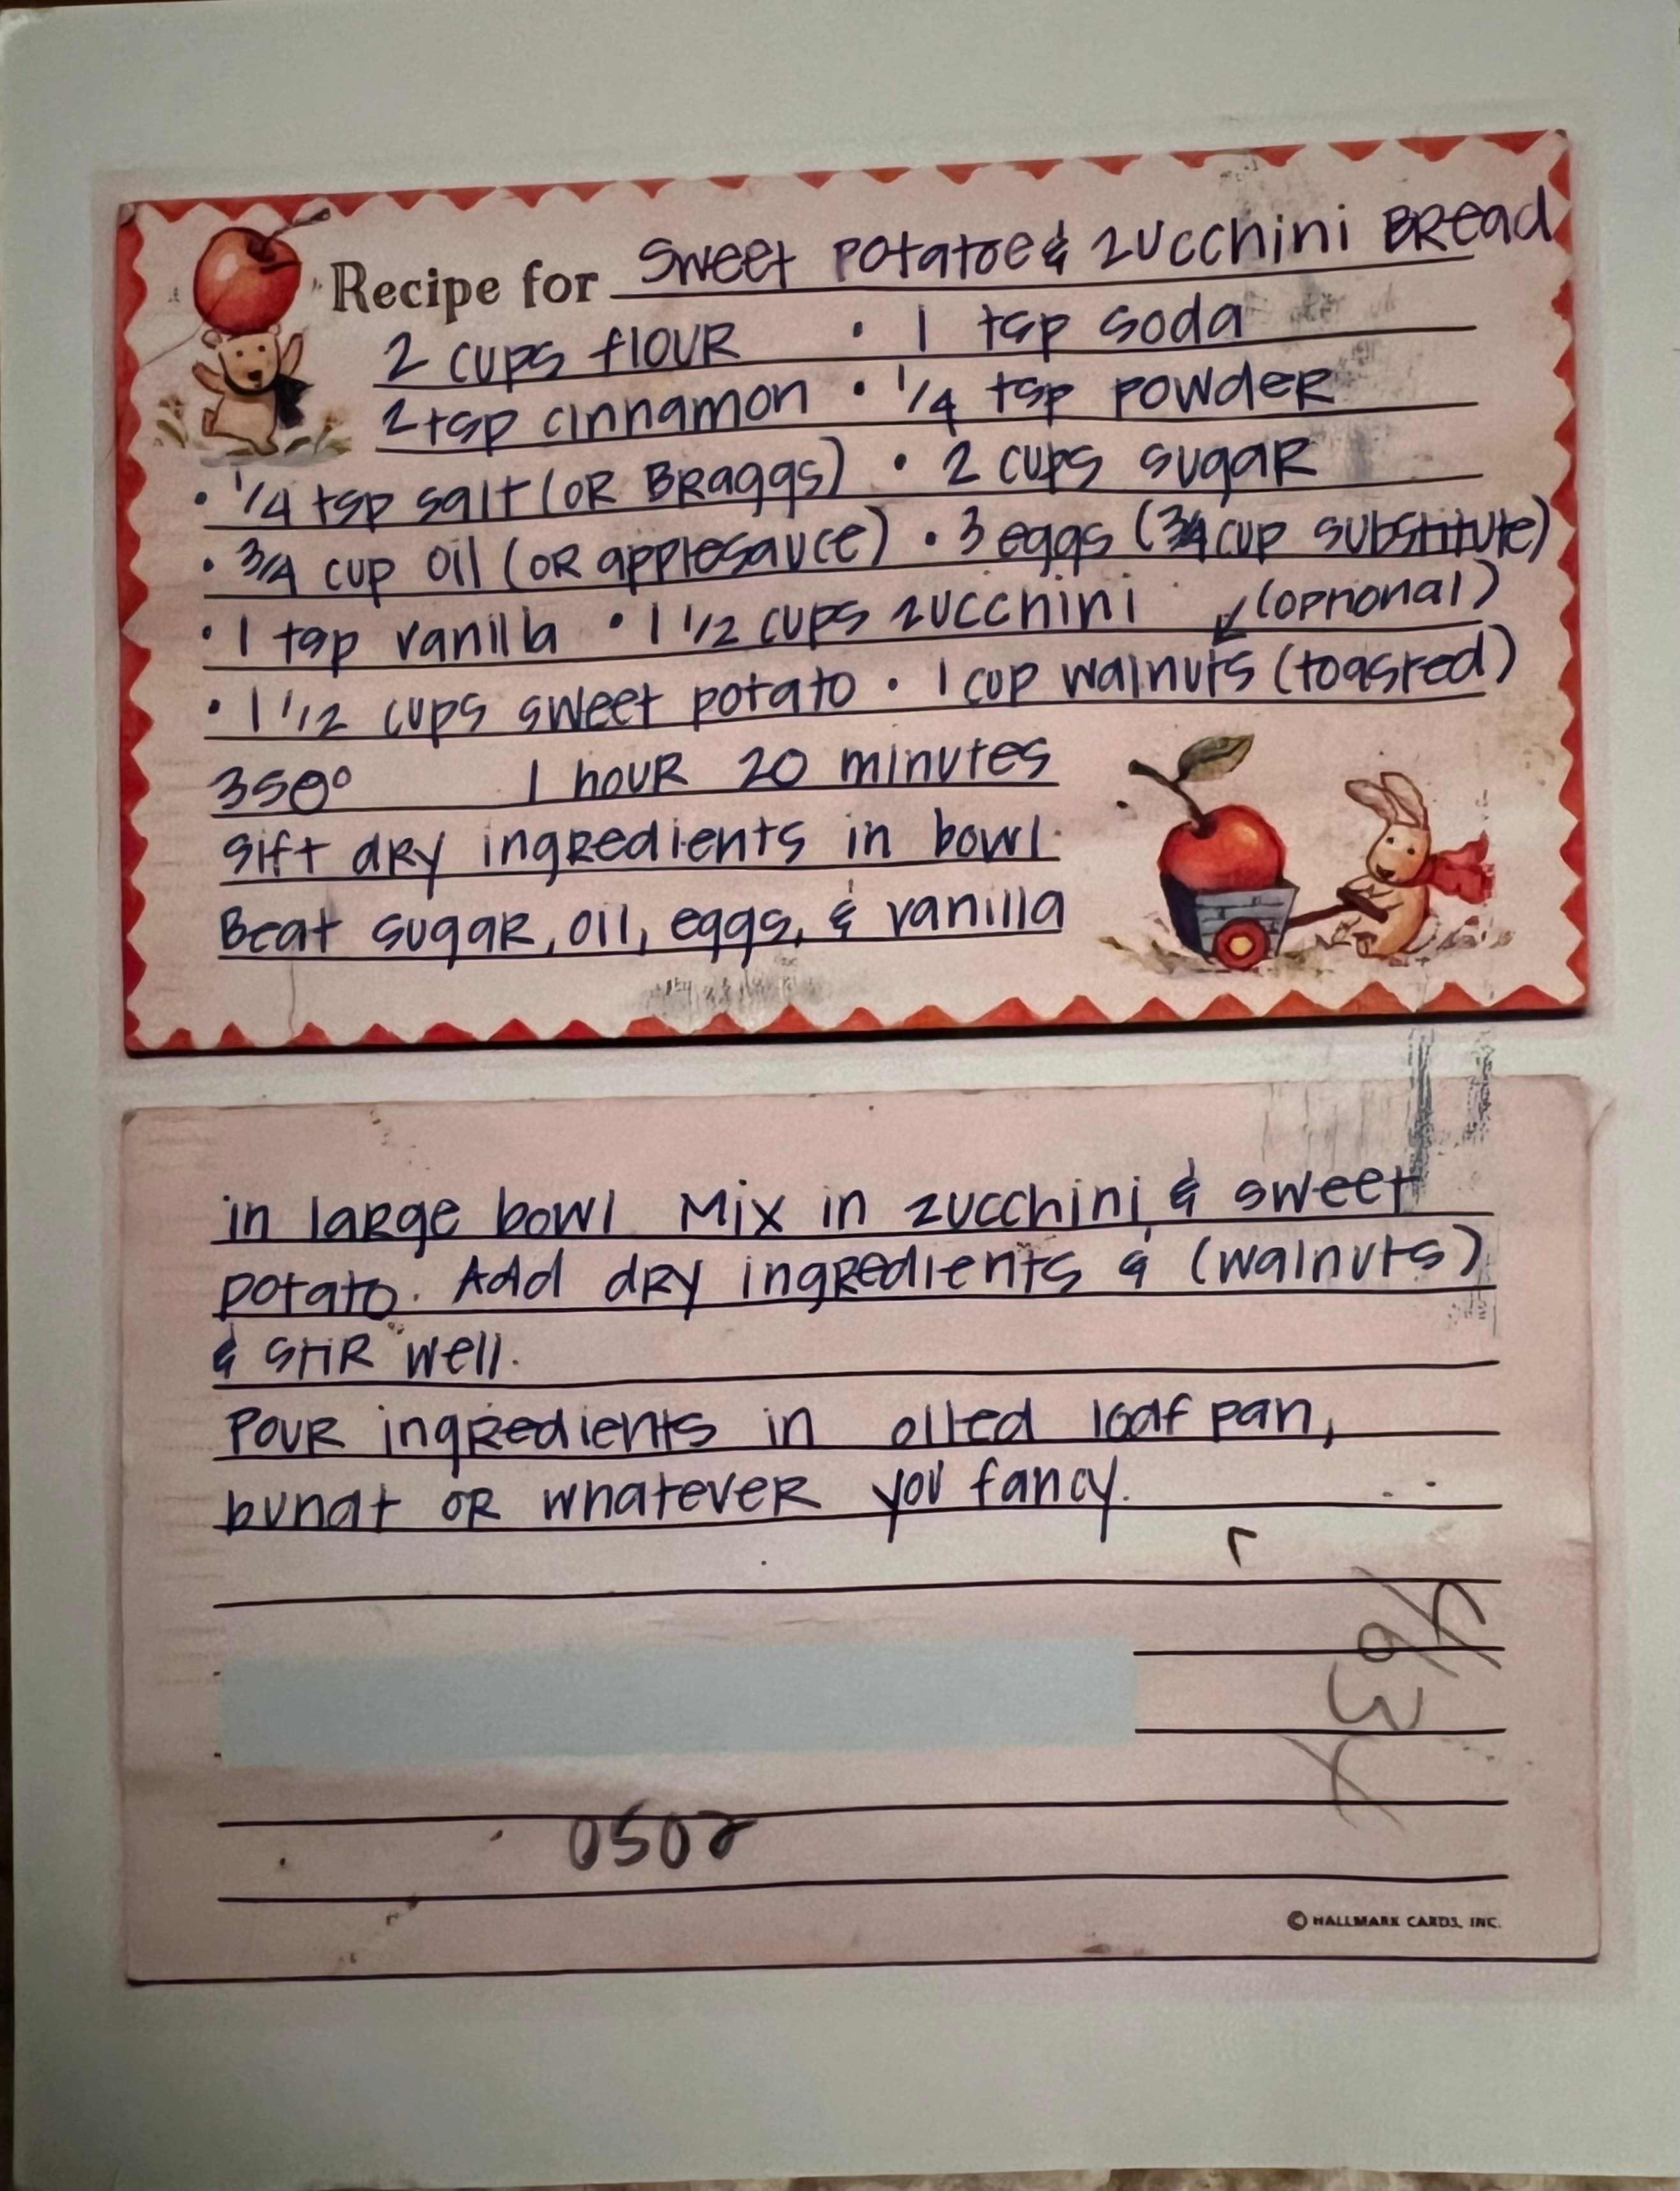 Recipe for Sweet Potatoe & Zucchini Bread
2 cups flour • 1 tsp soda
2 tsp cinnamon • 1/4 tsp powder
• 1/4 tsp salt (or Braggs) • 2 cups sugar
• 3/4 cup oil (or applesauce) • 3 eggs (3/4 cup substitute)
• 1 tsp vanilla • 1 1/2 cups zucchini (optional)
• 1 1/2 cups sweet potato • 1 cup walnuts (toasted)
350° 1 hour 20 minutes
Sift dry ingredients in bowl.
Beat sugar, oil, eggs, & vanilla
in large bowl Mix in zucchini & sweet
potato. Add dry ingredients & (walnuts)
& stir well.
Pour ingredients in oiled loaf pan,
bundt or whatever you fancy.
0502
© HALLMARK CARDS, INC.